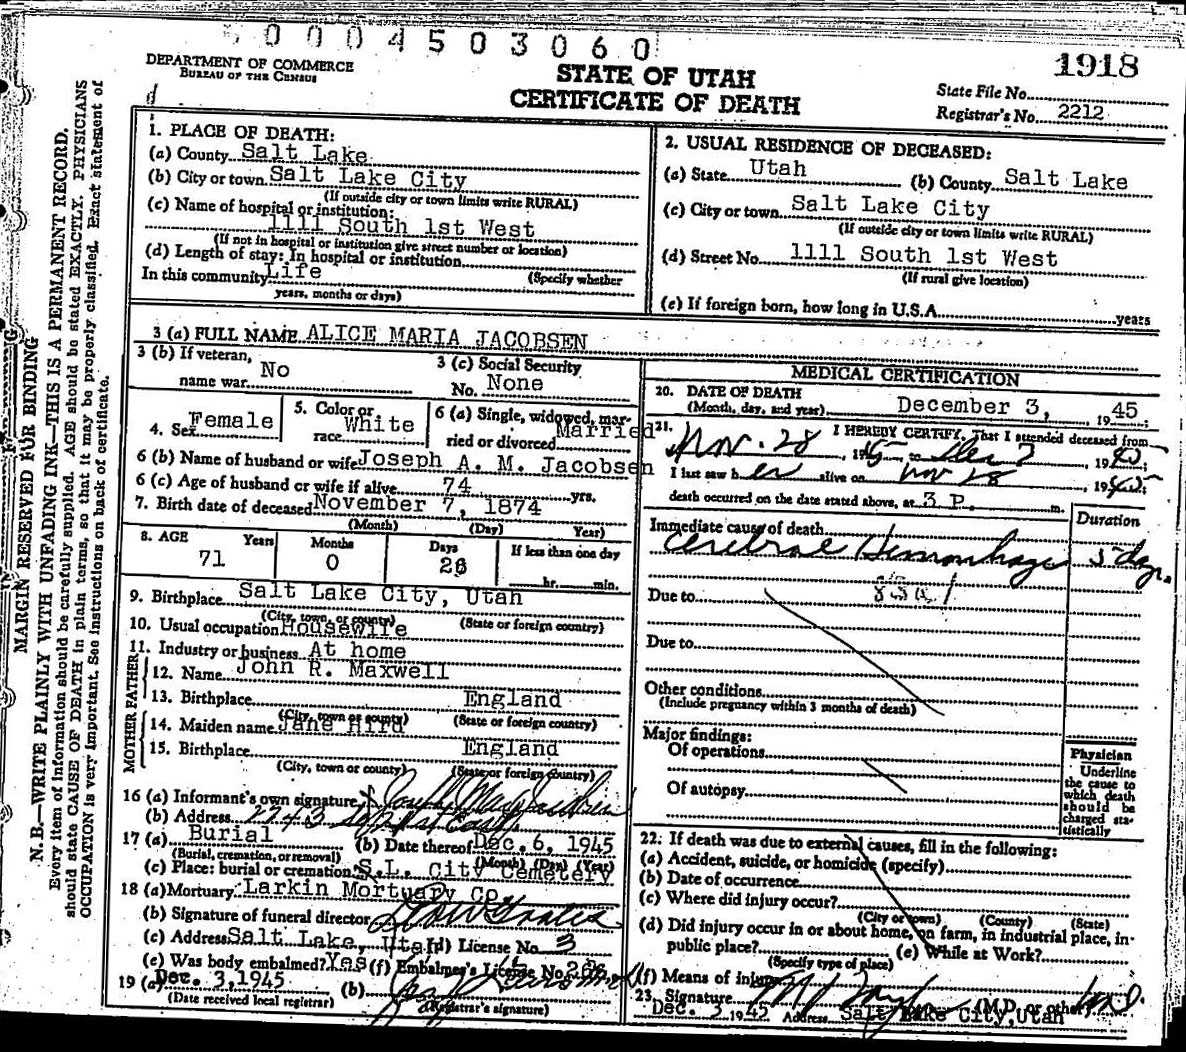 0004503060
DEPARTMENT OF COMMERCE
BUREAU OF THE CENSUS
STATE OF UTAH
CERTIFICATE OF DEATH
1918
State File No.
Registrar's No. 2212
MARGIN RESERVED FOR BINDING
N. B.—WRITE PLAINLY WITH UNFADING INK—THIS IS A PERMANENT RECORD.
Every item of information should be carefully supplied. AGE should be stated EXACTLY. PHYSICIANS
should state CAUSE OF DEATH in plain terms, so that it may be properly classified. Exact statement of
OCCUPATION is very important. See instructions on back of certificate.
1. PLACE OF DEATH:
(a) County Salt Lake
(b) City or town Salt Lake City
(If outside city or town limits write RURAL)
(c) Name of hospital or institution:
1111 South 1st West
(If not in hospital or institution give street number or location)
(d) Length of stay: In hospital or institution
In this community Life (Specify whether
years, months or days)
2. USUAL RESIDENCE OF DECEASED:
(a) State Utah (b) County Salt Lake
(c) City or town Salt Lake City
(If outside city or town limits write RURAL)
(d) Street No. 1111 South 1st West
(If rural give location)
(e) If foreign born, how long in U.S.A. years
3 (a) FULL NAME ALICE MARIA JACOBSEN
3 (b) If veteran, name war No
3 (c) Social Security No. None
4. Sex Female
5. Color or race White
6 (a) Single, widowed, married or divorced Married
6 (b) Name of husband or wife Joseph A. M. Jacobsen
6 (c) Age of husband or wife if alive 74 yrs.
7. Birth date of deceased November 7, 1874
(Month) (Day) Year)
8. AGE Years Months Days If less than one day
71 0 26 hr. min.
9. Birthplace Salt Lake City, Utah
(City, town, or county) (State or foreign country)
10. Usual occupation Housewife
11. Industry or business At home
FATHER
12. Name John R. Maxwell
13. Birthplace England
(City, town or county) (State or foreign country)
MOTHER
14. Maiden name Jane Hird
15. Birthplace England
(City, town or county) (State or foreign country)
16 (a) Informant's own signature
(b) Address
17 (a) Burial (b) Date thereof Dec. 6, 1945
(Burial, cremation, or removal) (Month) (Day) (Year)
(c) Place: burial or cremation S.L. City Cemetery
18 (a) Mortuary Larkin Mortuary Co
(b) Signature of funeral director
(c) Address Salt Lake, Utah (d) License No. 3
(e) Was body embalmed? Yes (f) Embalmer's License No.
19 (a) Dec. 3, 1945 (b)
(Date received local registrar) (Registrar's signature)
MEDICAL CERTIFICATION
20. DATE OF DEATH
(Month, day, and year) December 3, 1945
21. I HEREBY CERTIFY, That I attended deceased from
Nov. 28, 1945 to Dec 3, 1945;
I last saw her alive on Nov 28 1945;
death occurred on the date stated above, at 3 P. m.
Duration
Immediate cause of death
Cerebral Hemorrhage 5 days.
Due to
Due to
Other conditions
(Include pregnancy within 3 months of death)
Major findings:
Of operations
Of autopsy
Physician
Underline
the cause to
which death
should be
charged sta-
tistically
22. If death was due to external causes, fill in the following:
(a) Accident, suicide, or homicide (specify)
(b) Date of occurrence
(c) Where did injury occur?
(City or town) (County) (State)
(d) Did injury occur in or about home, on farm, in industrial place, in-
public place? (e) While at Work?
(Specify type of place)
(f) Means of injury
23. Signature (M.D. or other) M.D.
Dec. 3 1945 Address Salt Lake City, Utah